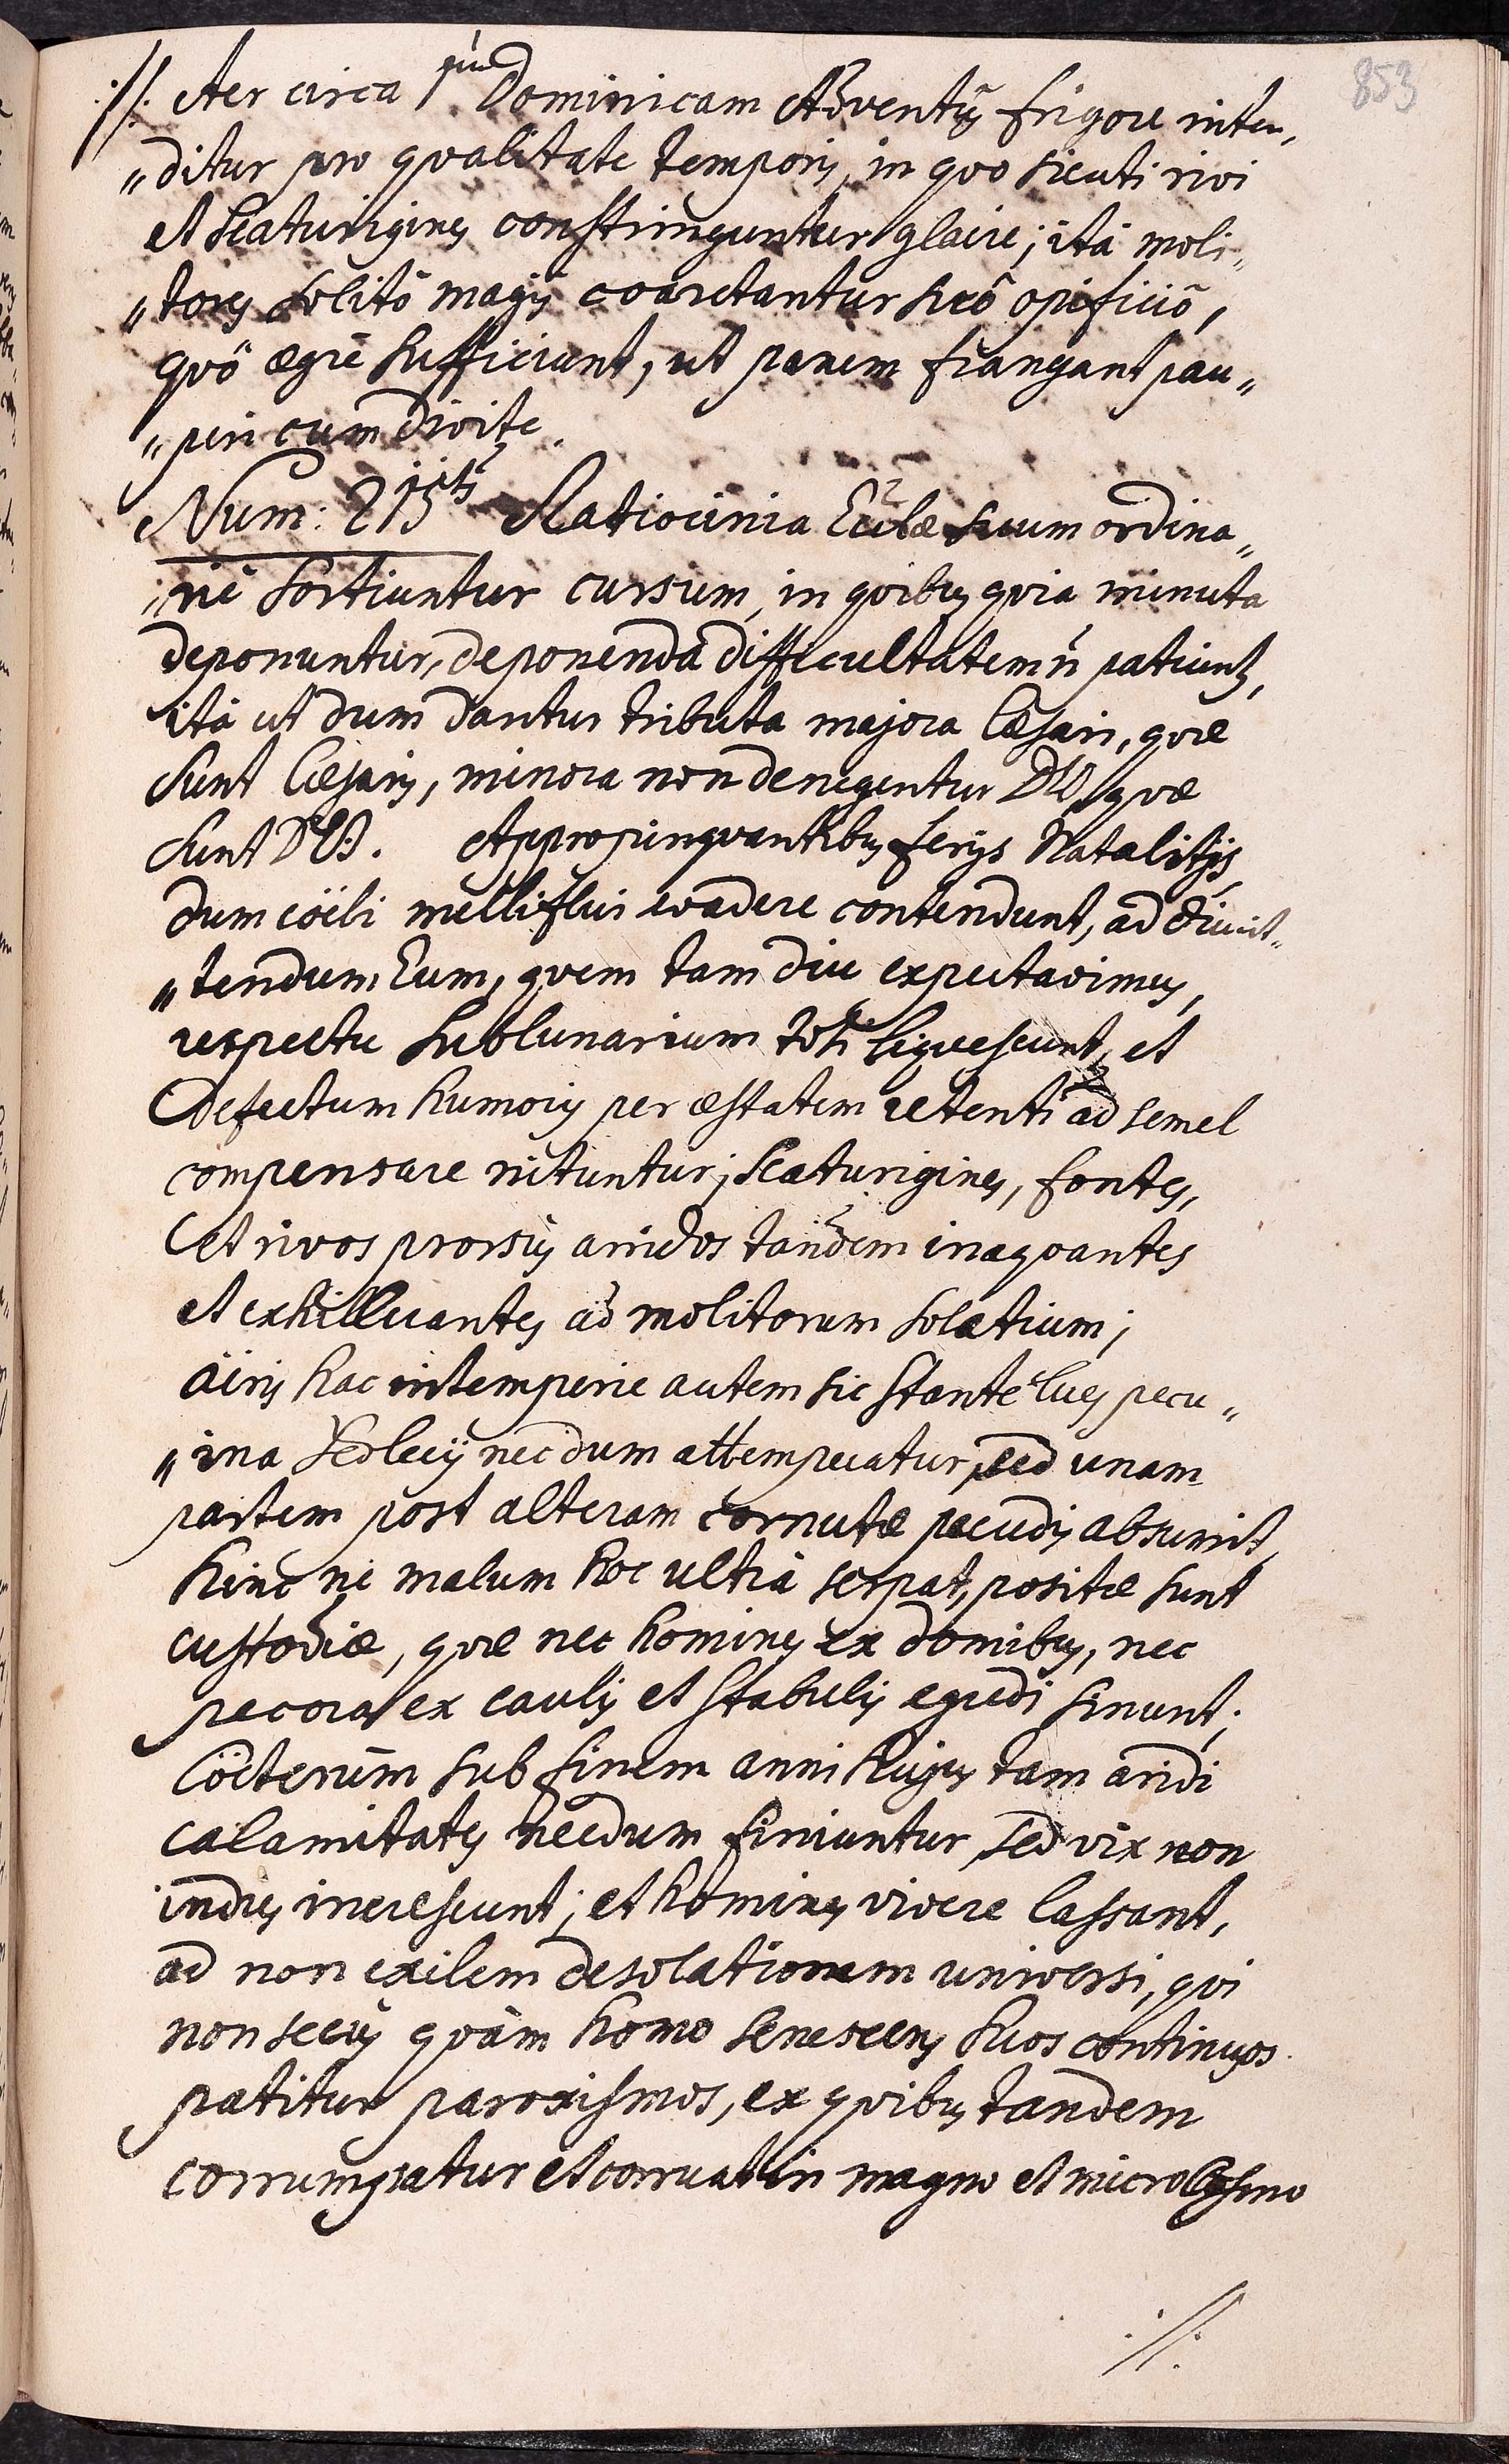 853
://: Aer circa 1mam Dominicam Adventûs frigore inten„
„ditur pro qvalitate temporis, in qvo sicuti rivi
et scaturigines constringuntur glacie; ità moli„
„tores solitô magis coarctantur suô opificiô,
qvô ægrè sufficiunt, ut panem frangant pau„
„peri cum divite.
Num: 215tò Ratiocinia Eccłæ suum ordina„
„riè sortiuntur cursum, in qvibus qvia minuta
deponuntur, deponenda difficultatem ñ patiunt,
ità ut dum dantur tributa majora Cæsari, qvæ
sunt Cæsaris, minora non denegentur DEO, qvæ
sunt DEI. Appropinqvantibus ferijs Natalitijs,
dum cöeli melliflui evadere contendunt, ad
„tendum Eum, qvem tam diu expectavimus,
respectu sublunarium toti liqvescunt, et
defectum humoris per æstatem retenti ad semel
compensare nituntur; scaturigines, fontes,
et rivos prorsùs aridos tandem inaqvantes
et exhillerantes ad molitorum solatium;
äeris hac intemperie autem sic stante lues pecu„
„ina Sedlecij necdum attemperatur, sed unam
partem post alteram cornutæ pecudis absumit,
hinc ne malum hoc ultrà serpat, positæ sunt
custodiæ, qvæ nec homines ex domibus, nec
pecora ex caulis et stabulis egredi sinunt;
Cöeterùm sub finem anni hujus tam aridi
calamitates necdum finiuntur, sed vix non
indies increscunt; et homines vivere lassant,
ad non exilem desolationem universi, qvi
non secùs qvàm homo senescens suos continuos
patitur paroxismos, ex qvibus tandem
corrumpatur et corruat in magno et microcosmo
://: